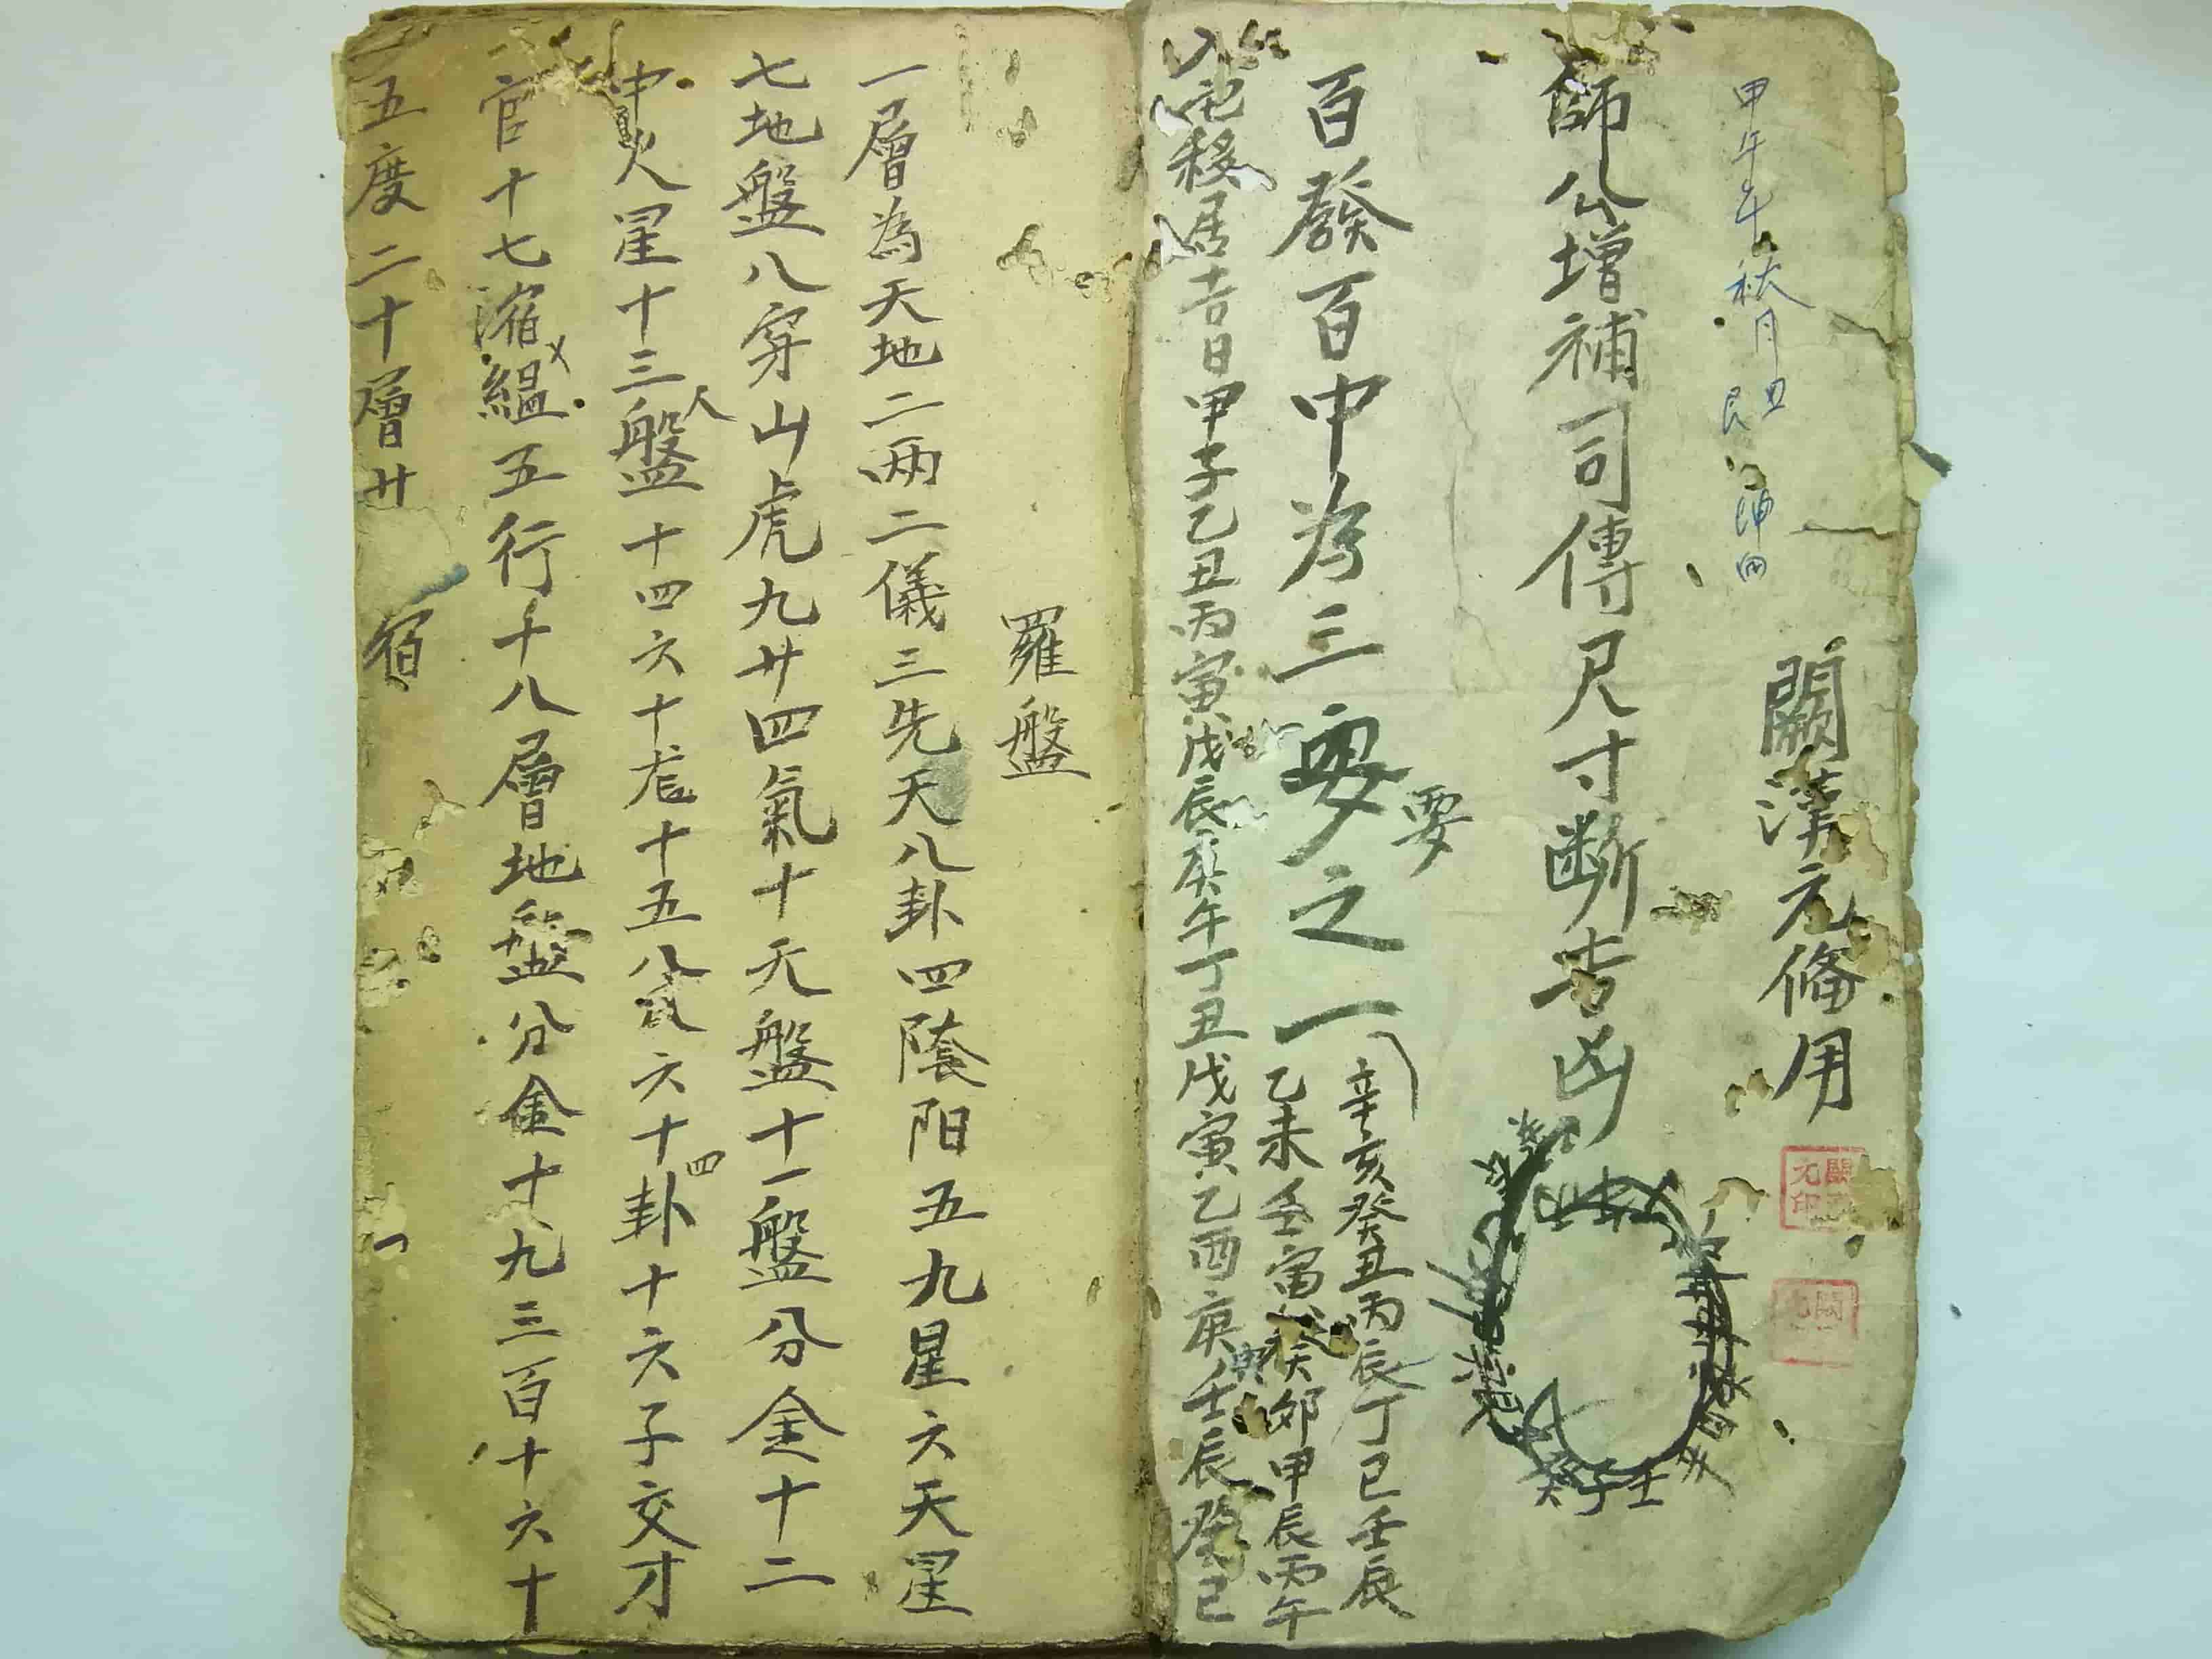 甲午年秋月
闕漢元俻用
師公增補司傳尺寸斷吉凶
百發百中為三要之一
要
辛亥癸丑丙辰丁巳壬辰
乙未壬寅癸卯甲辰丙午
入宅移居吉日甲子乙丑丙寅戊辰庚午丁丑戊寅乙酉庚壬辰癸巳
癸子壬
羅盤
一層為天地二兩二儀三先天八卦四陰阳五九星六天星
七地盤八穿山虎九廿四氣十天盤十一盤分金十二
中火星十三盤十四六十龙十五八六十卦十六子交才
人
四
官十七縕五行十八層地盤分金十九三百十六十
五度二十層廿宿